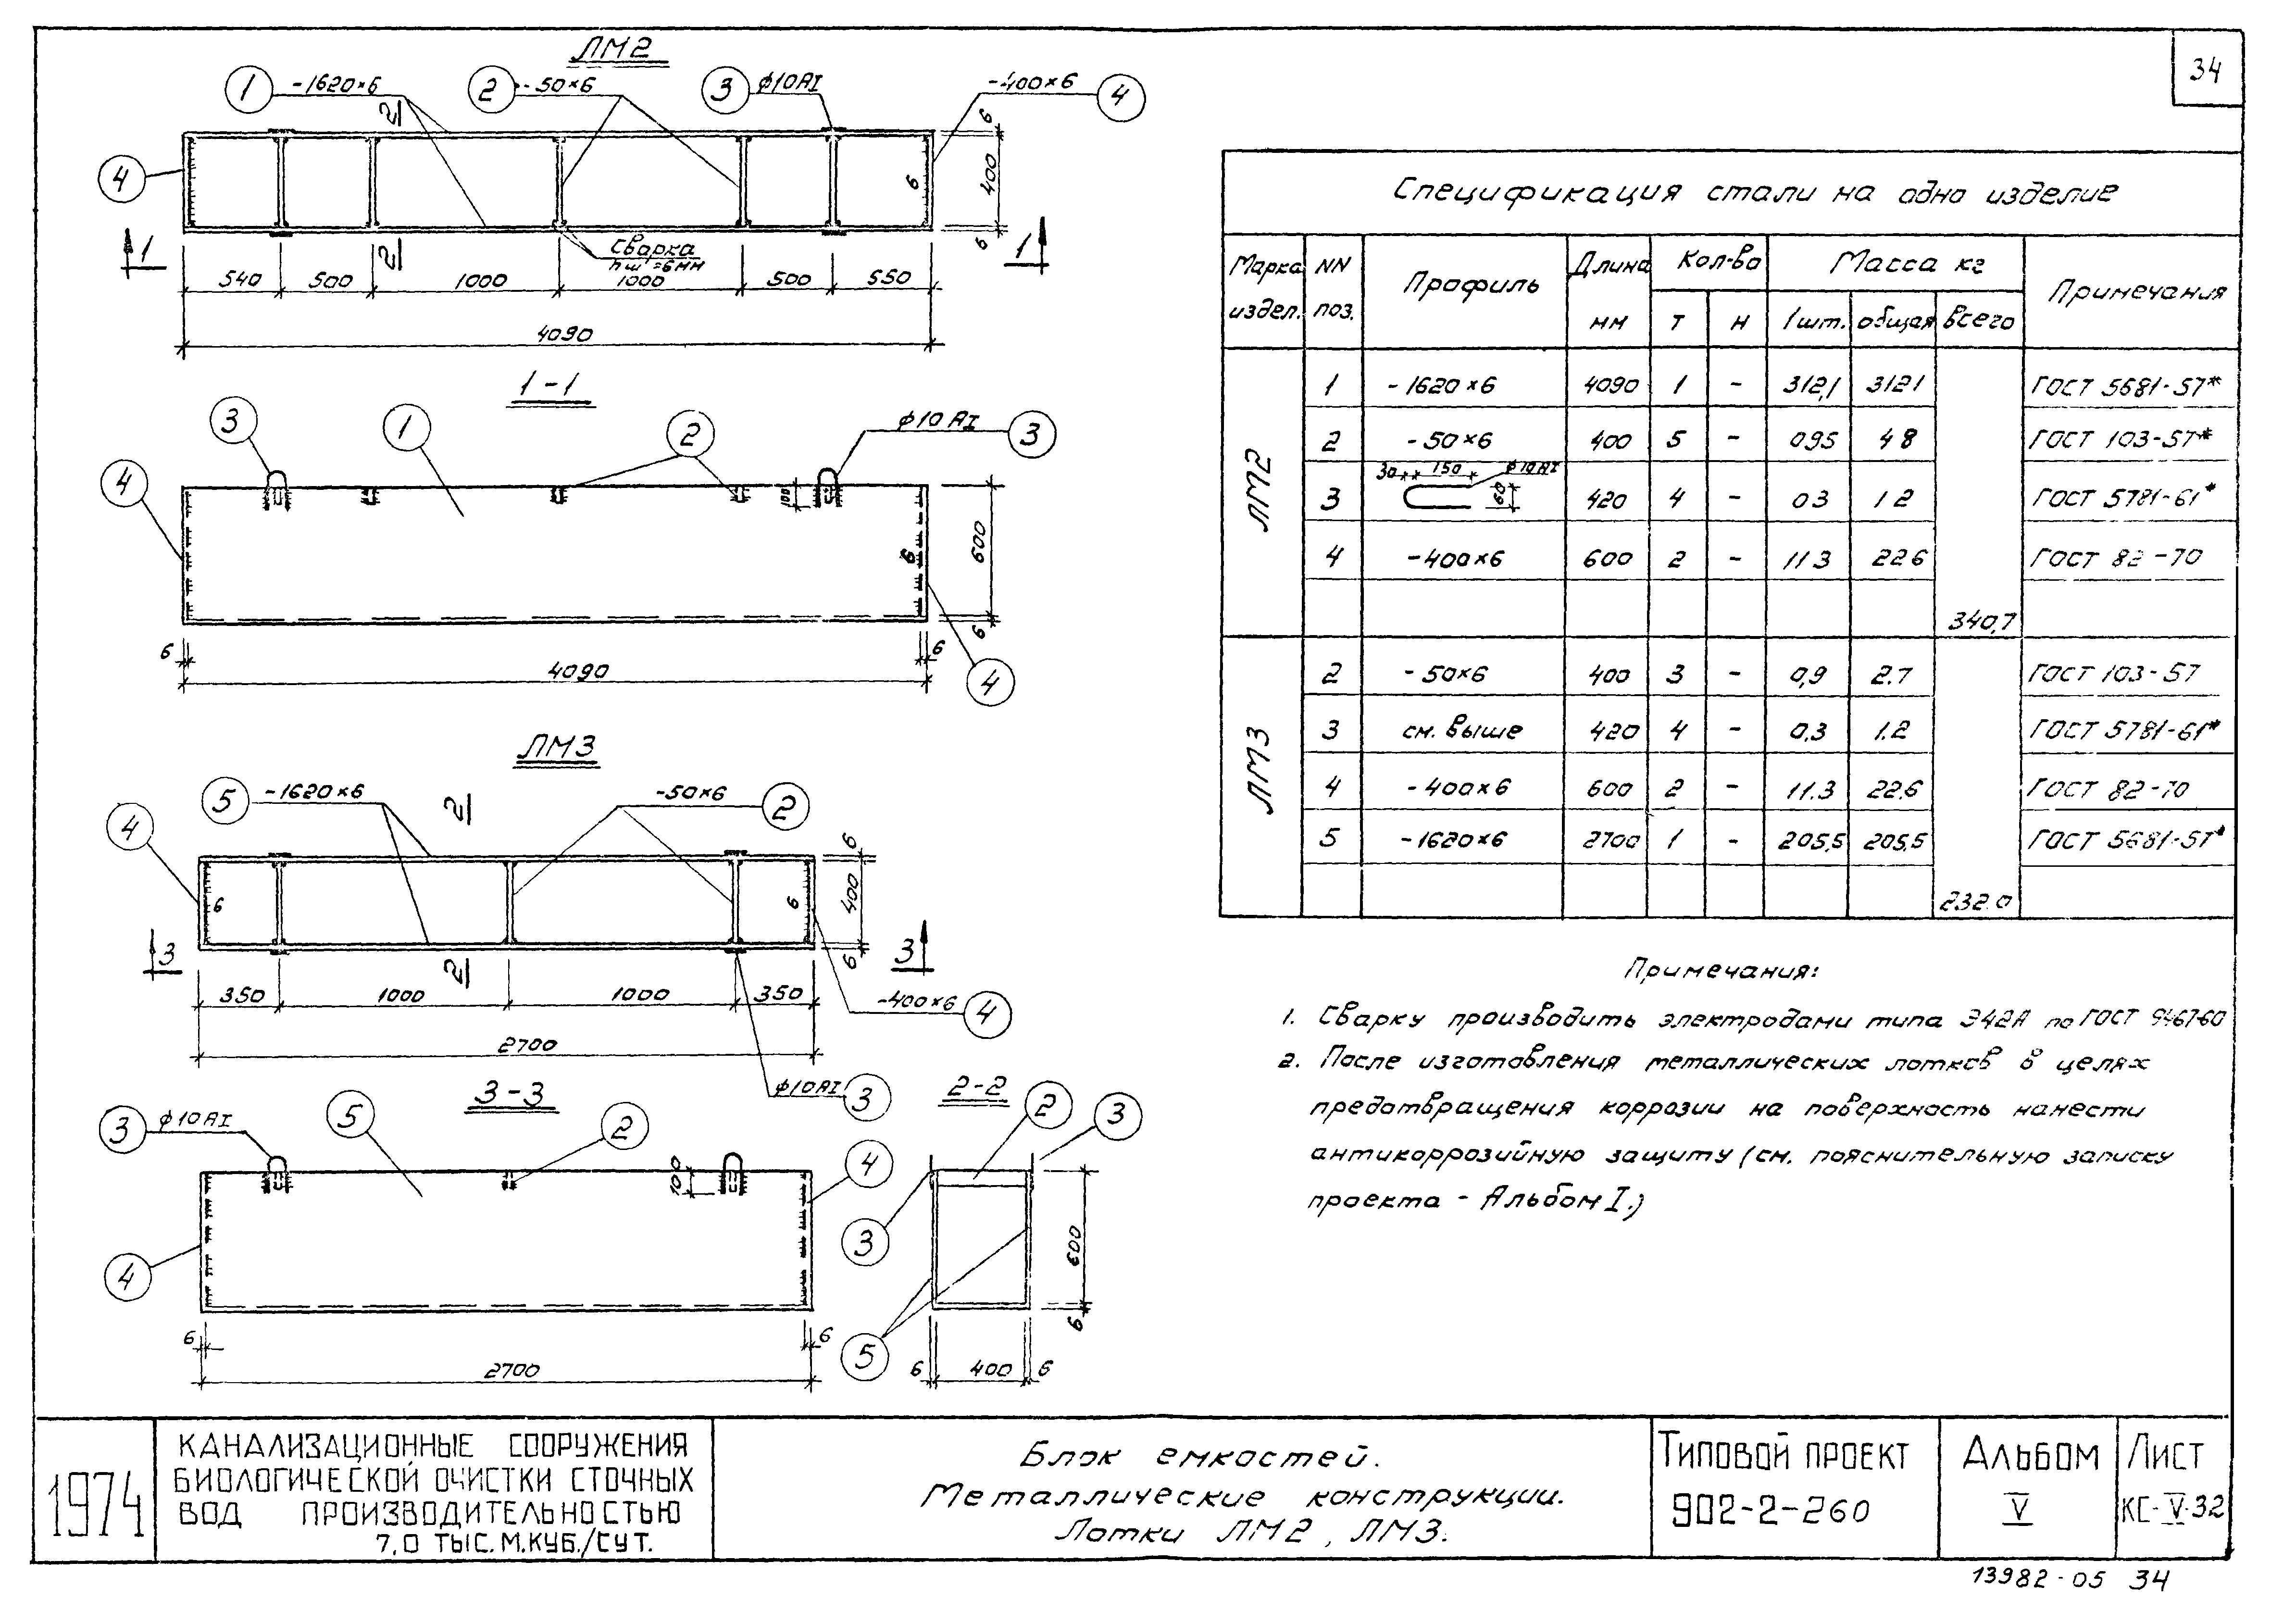 34
ЛМ2
1 -1620×6
2 -50×6
3 ф10АI
-400×6 4
4
2
2
6
400
6
6
1
1
Сварка
hш=6мм
540 500 1000 1000 500 550
4090
1-1
3
1
2
ф10АI 3
4
100
6
600
6
6
6
4090
4
ЛМ3
5 -1620×6
2
-50×6 2
4
6
6
6
400
6
3
2
3
350 1000 1000 350
-400×6 4
2700
ф10АI 3
3-3
2-2
3 ф10АI
5
2
4
100
4
6
6
2700
2
3
3
5
600
6
6 400 6
Спецификация стали на одно изделие
Марка издел. NN поз. Профиль Длина мм Кол-во Масса кг Примечания
Т Н 1шт. общая всего
ЛМ2
1 -1620×6 4090 1 - 312,1 312,1 ГОСТ 5681-57*
2 -50×6 400 5 - 0.95 4.8 ГОСТ 103-57*
3 30 150 ф10АI 60 420 4 - 0.3 1.2 ГОСТ 5781-61*
4 -400×6 600 2 - 11.3 22.6 ГОСТ 82-70
340,7
ЛМ3
2 -50×6 400 3 - 0,9 2.7 ГОСТ 103-57
3 см. выше 420 4 - 0,3 1.2 ГОСТ 5781-61*
4 -400×6 600 2 - 11.3 22.6 ГОСТ 82-70
5 -1620×6 2700 1 - 205,5 205,5 ГОСТ 5681-57*
232.0
Примечания:
1. Сварку производить электродами типа Э42А по ГОСТ 9467-60
2. После изготовления металлических лотков в целях
предотвращения коррозии на поверхность нанести
антикоррозийную защиту (см. пояснительную записку
проекта - Альбом I.)
1974
КАНАЛИЗАЦИОННЫЕ СООРУЖЕНИЯ
БИОЛОГИЧЕСКОЙ ОЧИСТКИ СТОЧНЫХ
ВОД ПРОИЗВОДИТЕЛЬНОСТЬЮ
7,0 ТЫС.М.КУБ./СУТ.
Блок емкостей.
Металлические конструкции.
Лотки ЛМ2, ЛМ3.
ТИПОВОЙ ПРОЕКТ
902-2-260
АЛЬБОМ
V
ЛИСТ
КС-V-32
13982-05 34